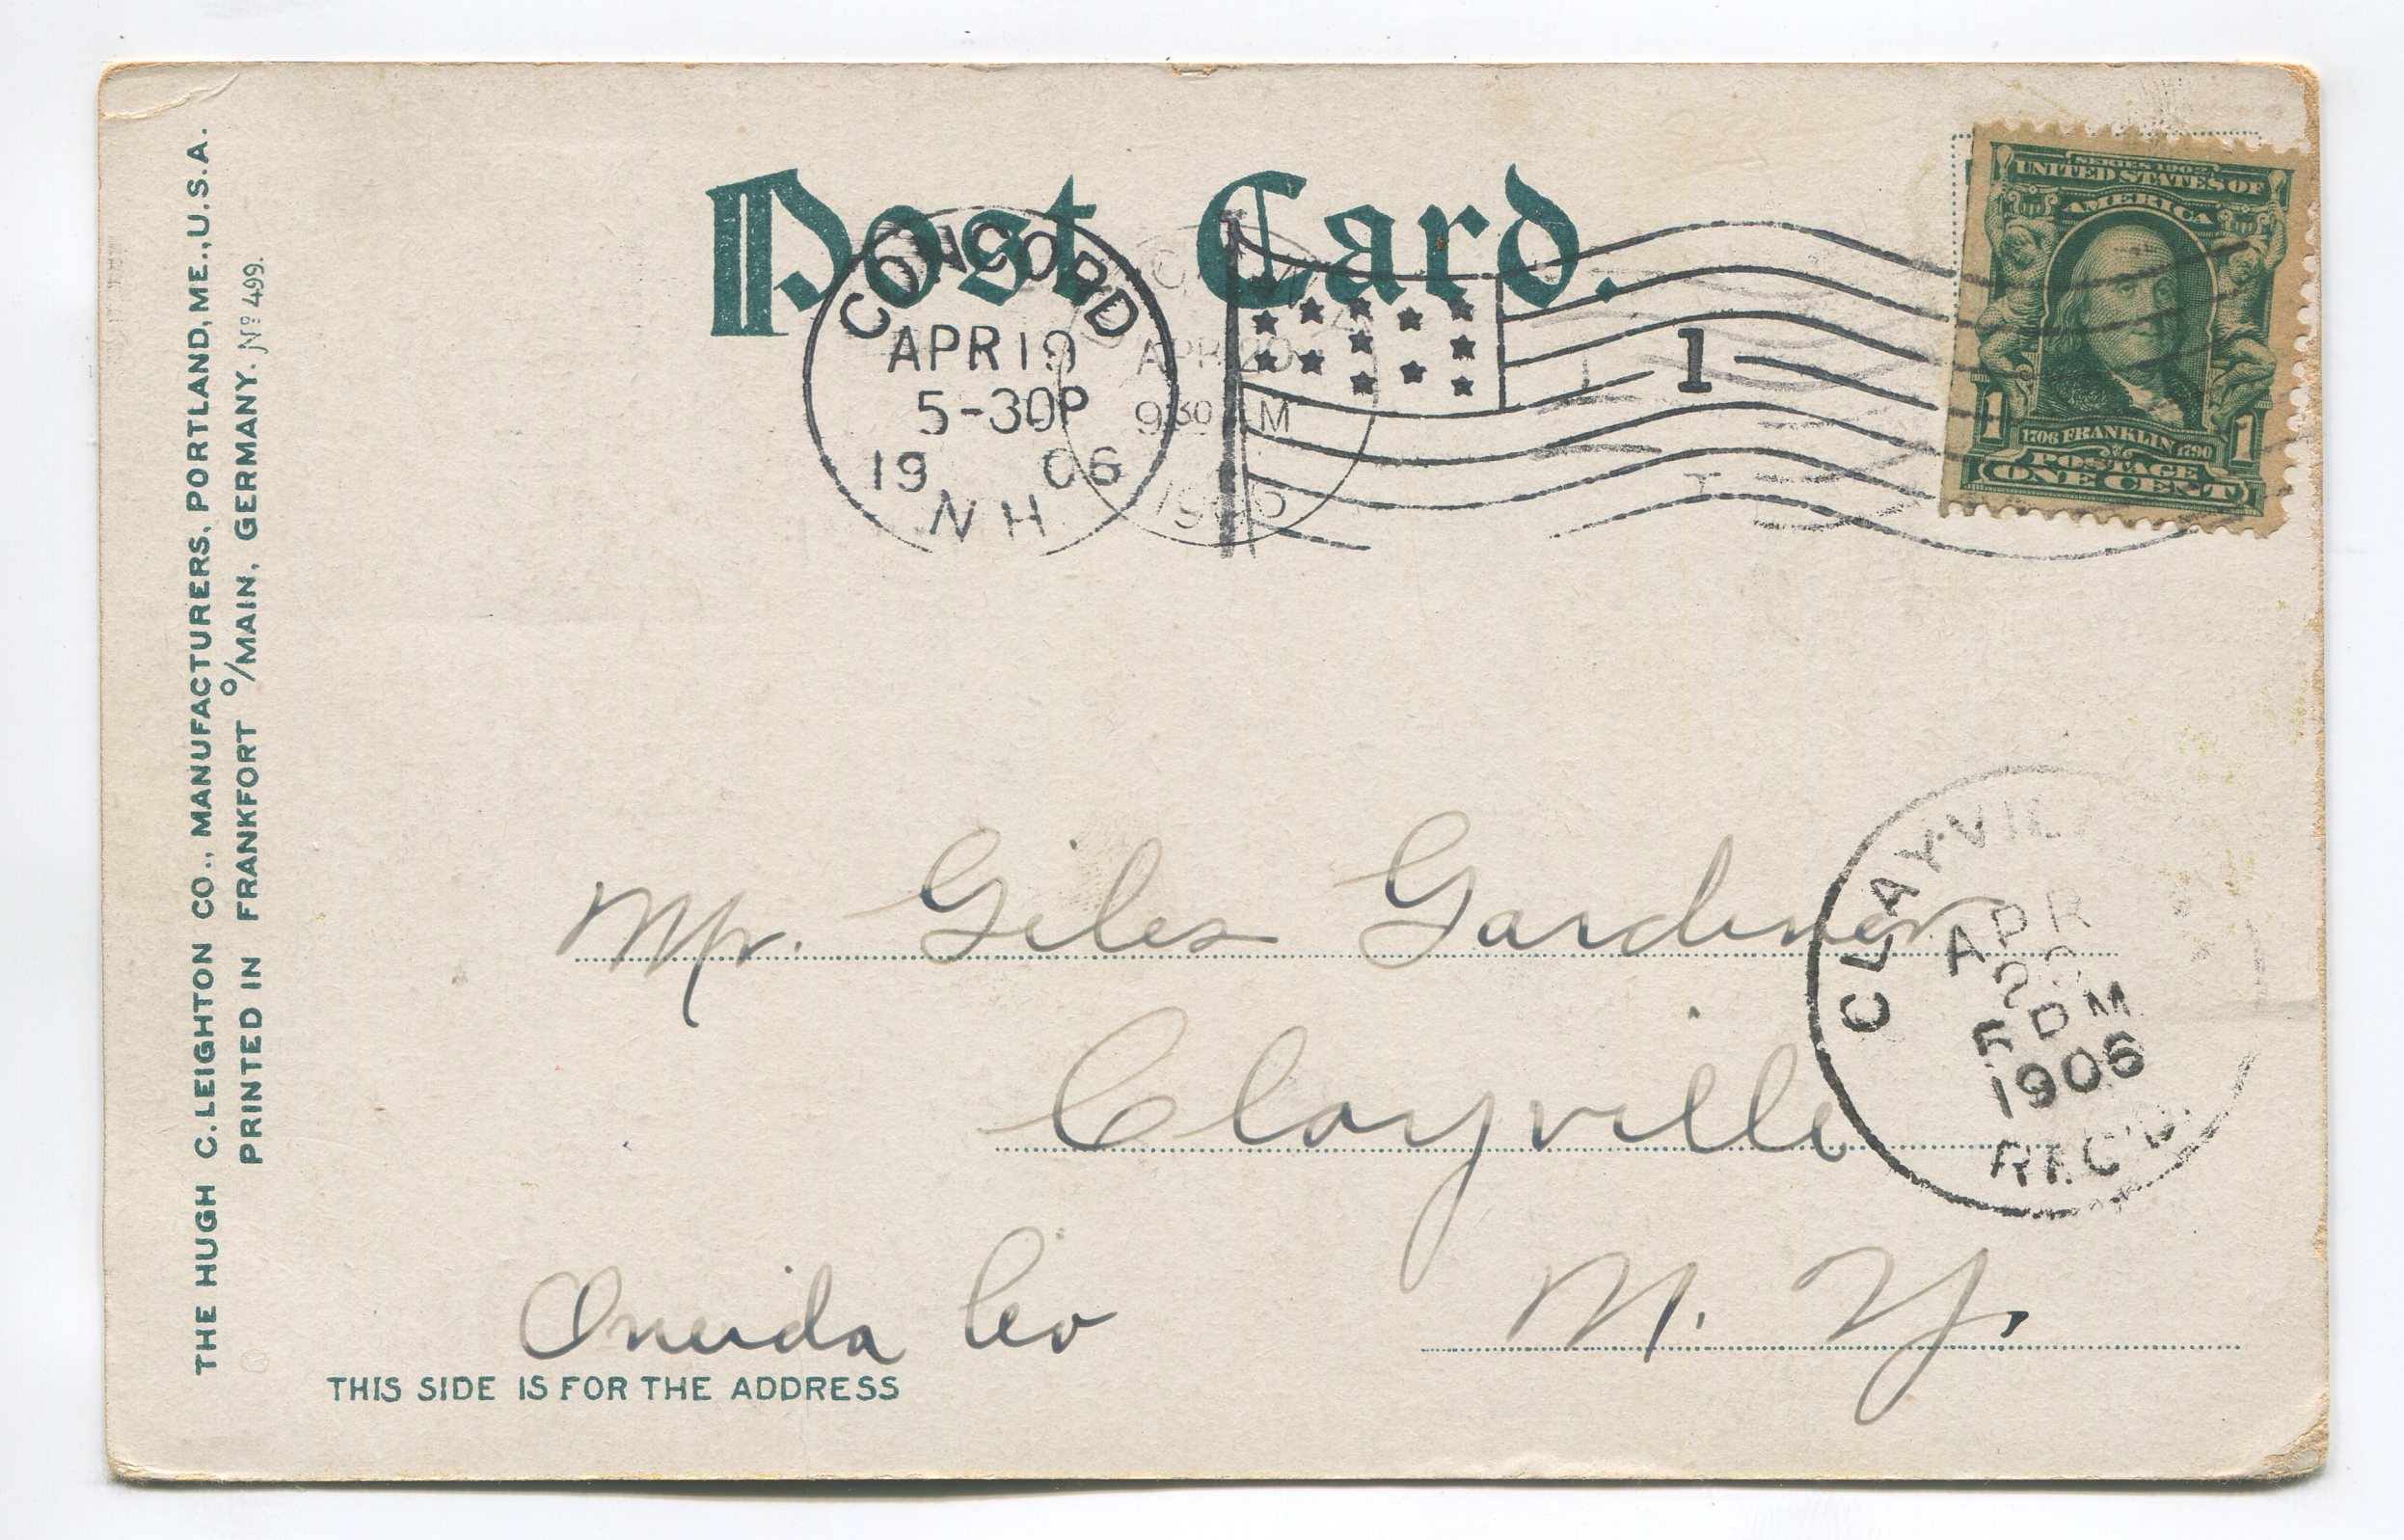 Post Card.
THE HUGH C. LEIGHTON CO., MANUFACTURERS, PORTLAND, ME., U.S.A.
PRINTED IN FRANKFORT o/MAIN, GERMANY. No 499.
CONCORD
APR 19
5-30P
19 06
N H
APR 20
930 M
1
SERIES 1902
UNITED STATES OF
AMERICA
1 1
1706 FRANKLIN 1790
POSTAGE
ONE CENT
Mr. Giles Gardiner
Clayville
Oneida Co
N. Y.
CLAYVIL
APR
M
1906
REC'D
THIS SIDE IS FOR THE ADDRESS